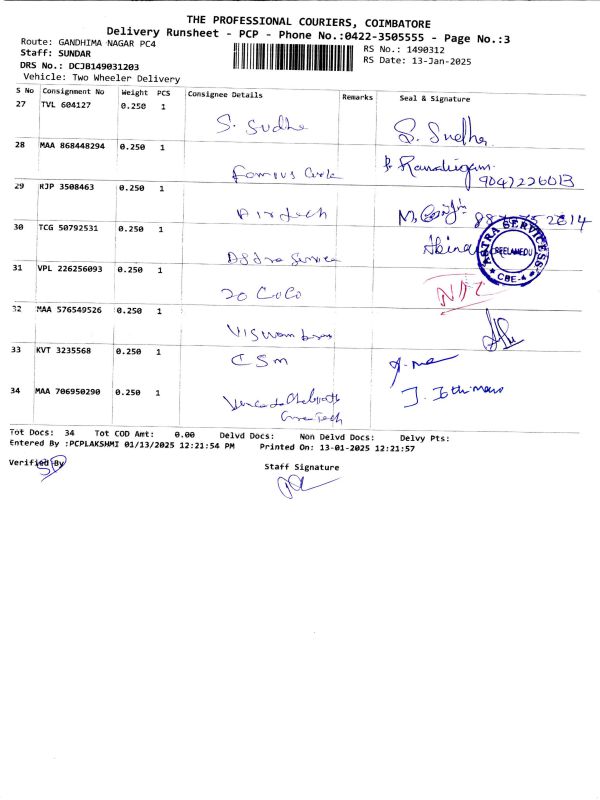 THE PROFESSIONAL COURIERS, COIMBATORE
Delivery Runsheet - PCP - Phone No.:0422-3505555 - Page No.:3
Route: GANDHIMA NAGAR PC4
RS No.: 1490312
Staff: SUNDAR
RS Date: 13-Jan-2025
DRS No.: DCJB149031203
Vehicle: Two Wheeler Delivery
S No Consignment No Weight PCS Consignee Details Remarks Seal & Signature
27 TVL 604127 0.250 1
S. Sudha S. Sudha
28 MAA 868448294 0.250 1
Famous Cark
9047226013
29 RJP 3508463 0.250 1
Airtech
30 TCG 50792531 0.250 1
Astra Service
ASTRA SERVICESS PEELAMEDU CBE-4
31 VPL 226256093 0.250 1
20 CoCo
32 MAA 576549526 0.250 1
33 KVT 3235568 0.250 1
CSM
34 MAA 706950290 0.250 1
Tech
Tot Docs: 34 Tot COD Amt: 0.00 Delvd Docs: Non Delvd Docs: Delvy Pts:
Entered By :PCPLAKSHMI 01/13/2025 12:21:54 PM Printed On: 13-01-2025 12:21:57
Verified By
Staff Signature